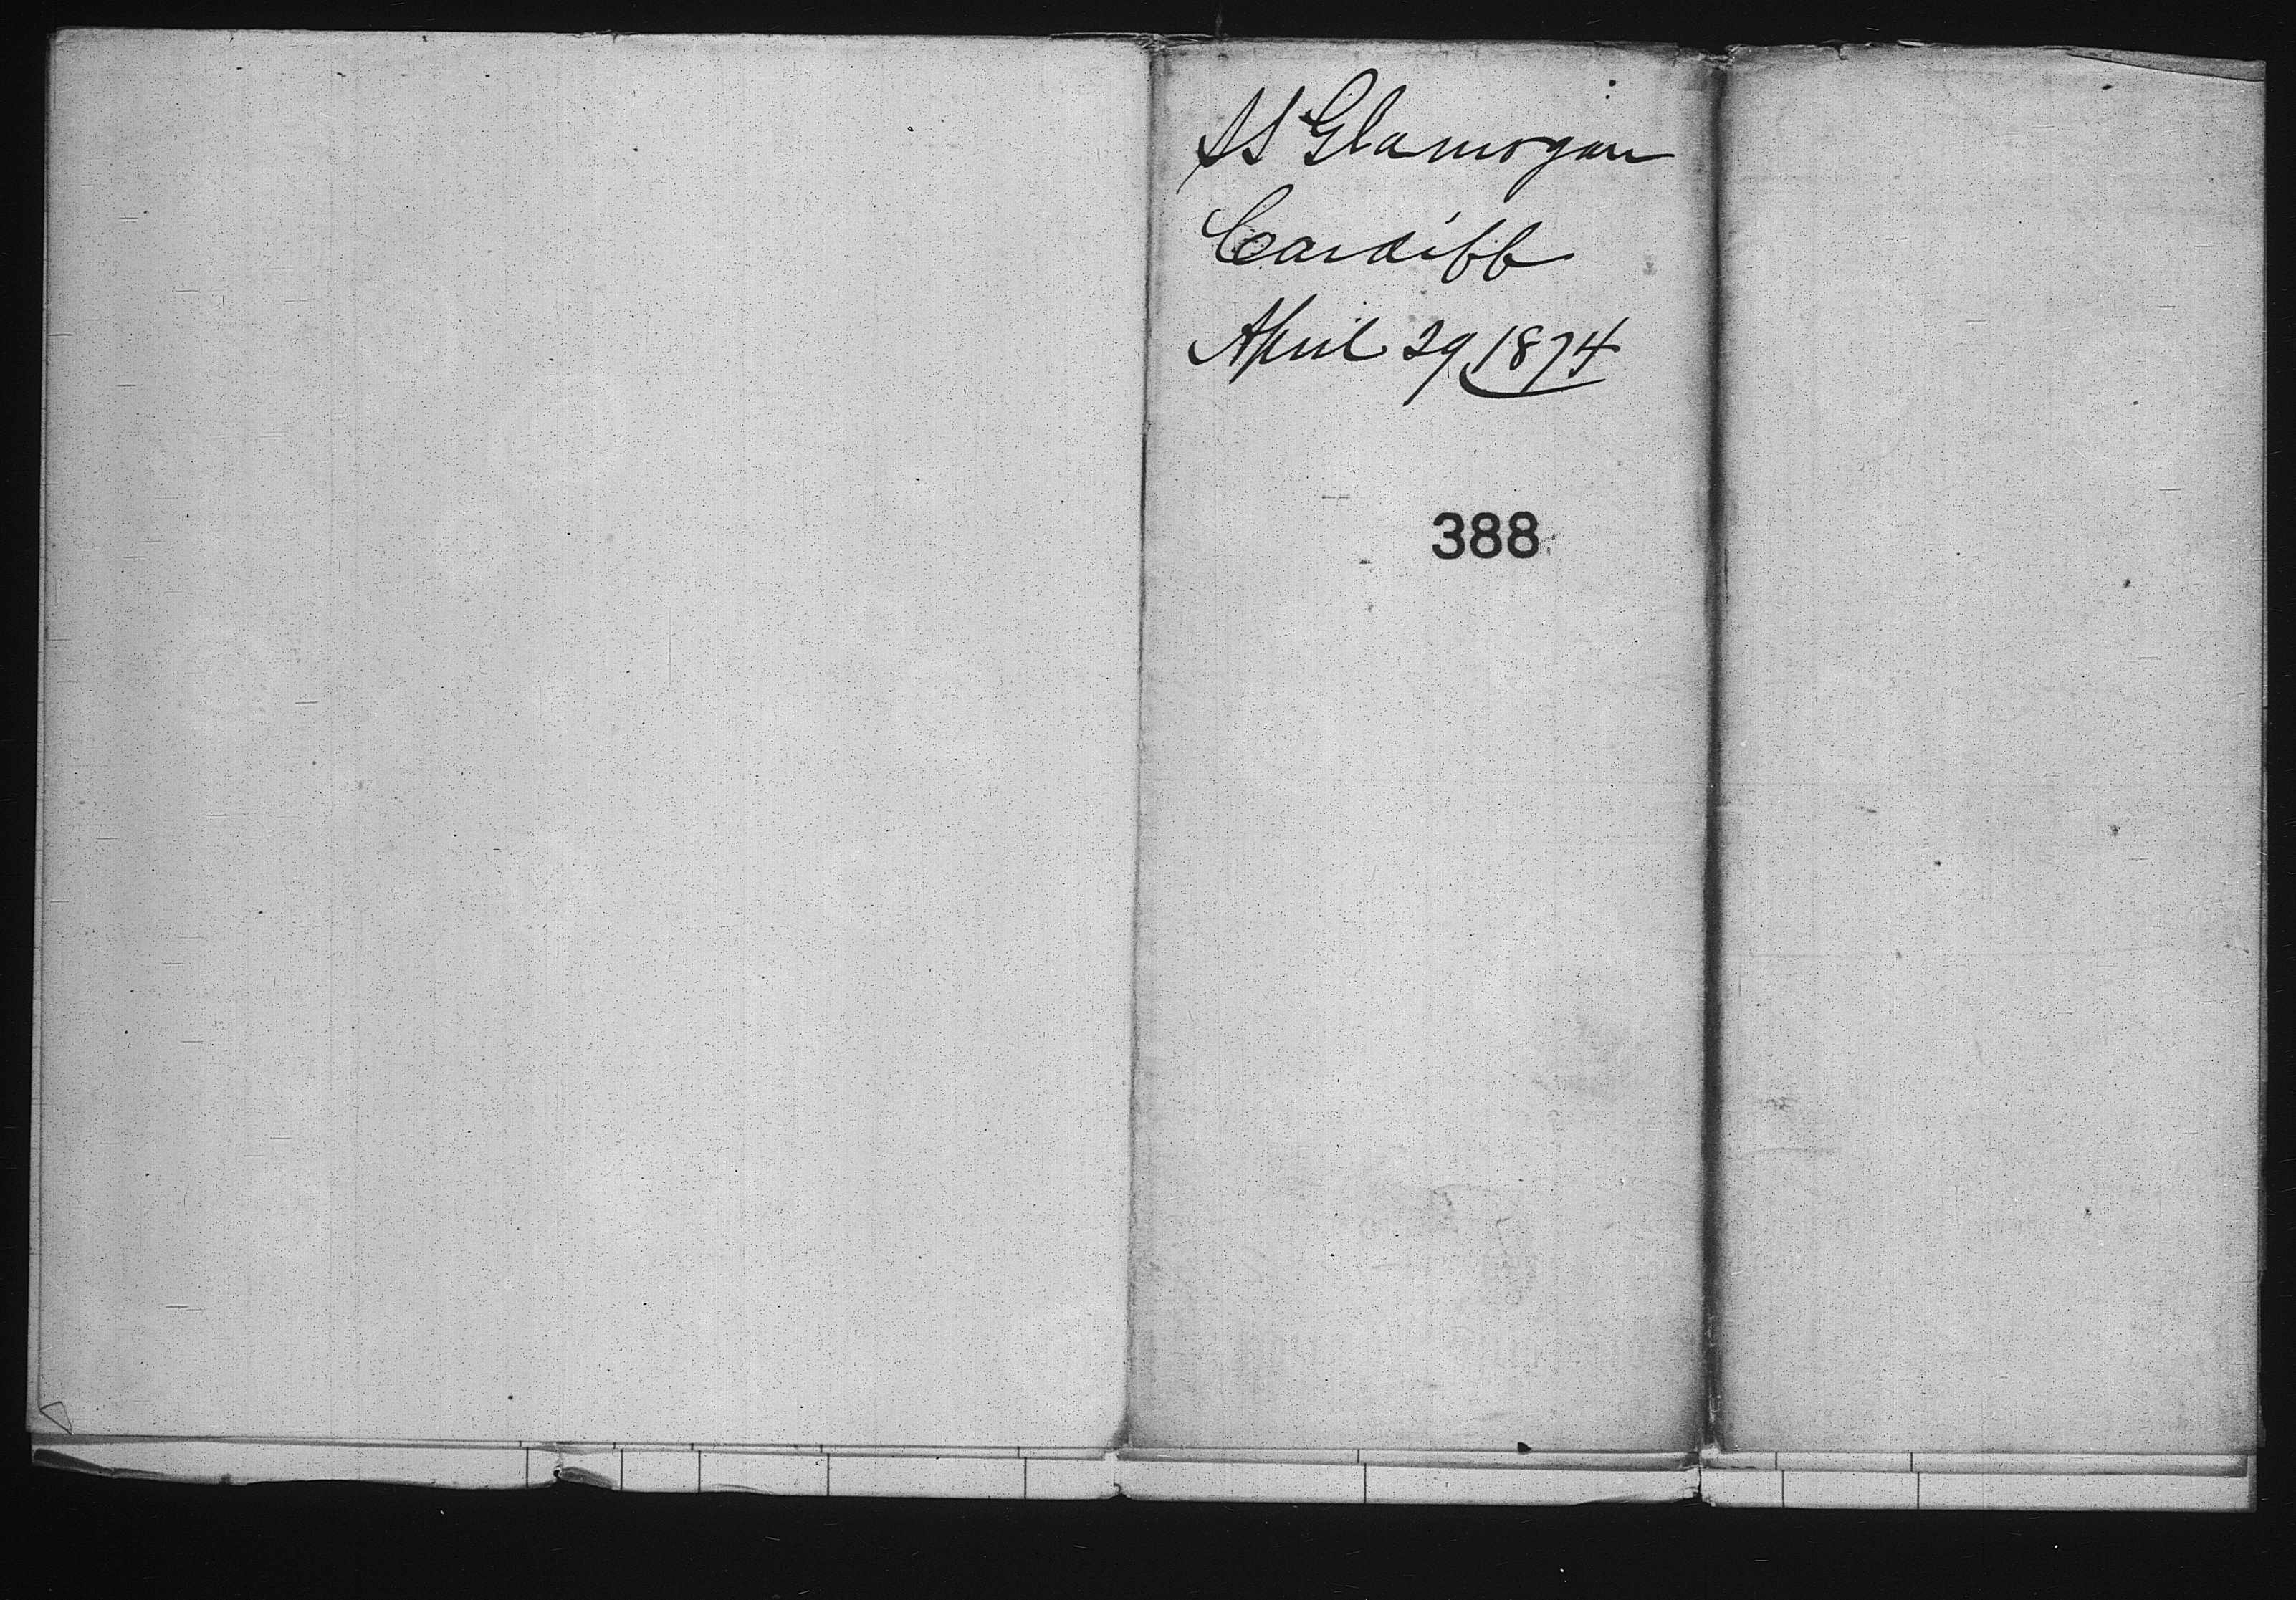 SS Glamorgan
Cardiff
April 29 1874
388